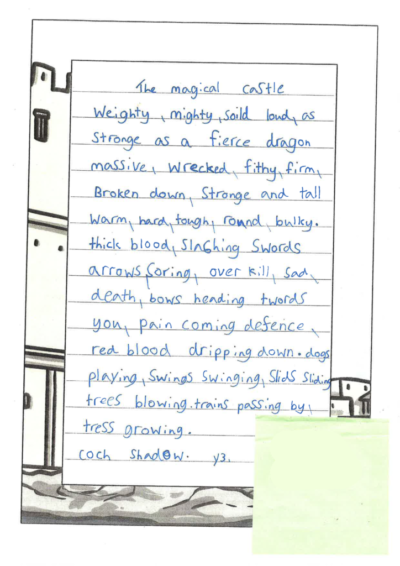 The magical castle
Weighty, mighty, soild loud, as
Stronge as a fierce dragon
massive, wrecked, fithy, firm,
Broken down, Stronge and tall
Warm, hard, tough, round, bulky.
thick blood, Slashing Swords
arrows soring, over kill, sad,
death, bows heading twords
you, pain coming defence,
red blood dripping down. dogs
playing, Swings Swinging, Slids Sliding
trees blowing. trains passing by,
tress growing.
coch shadow. y3.